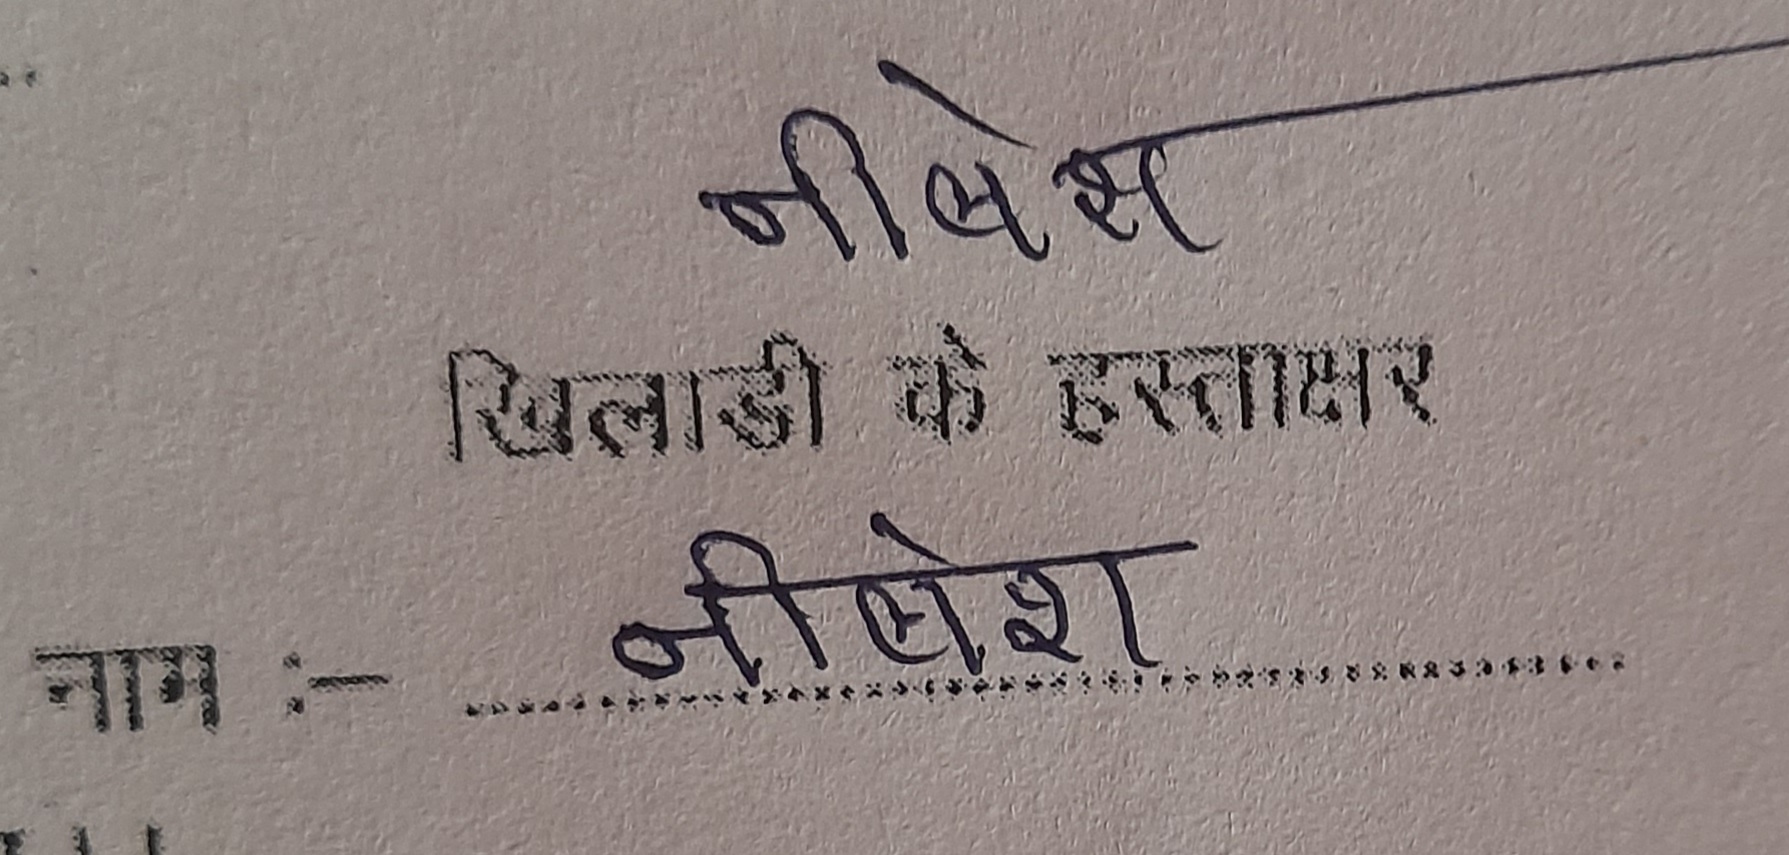 नीलेश
खिलाडी के हस्ताक्षर
नाम :- नीलेश